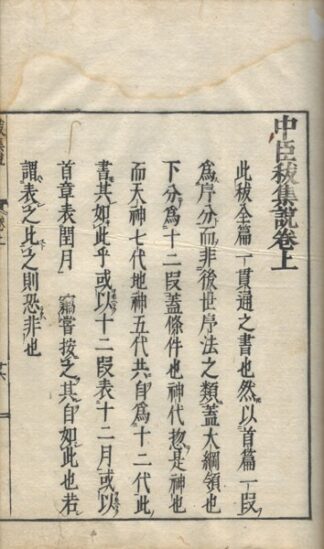 中臣秡集說卷上
此秡全篇一貫通之書也然以首篇一段
爲序分而非後世序法之類蓋大綱領也
下分爲十二段蓋條件也神代揔是神也
而天神七代地神五代共自爲十二代此
書其如此乎或以十二段表十二月或以
首章表閏月 竊嘗按之其自如此也若
謂表之此之則恐非也